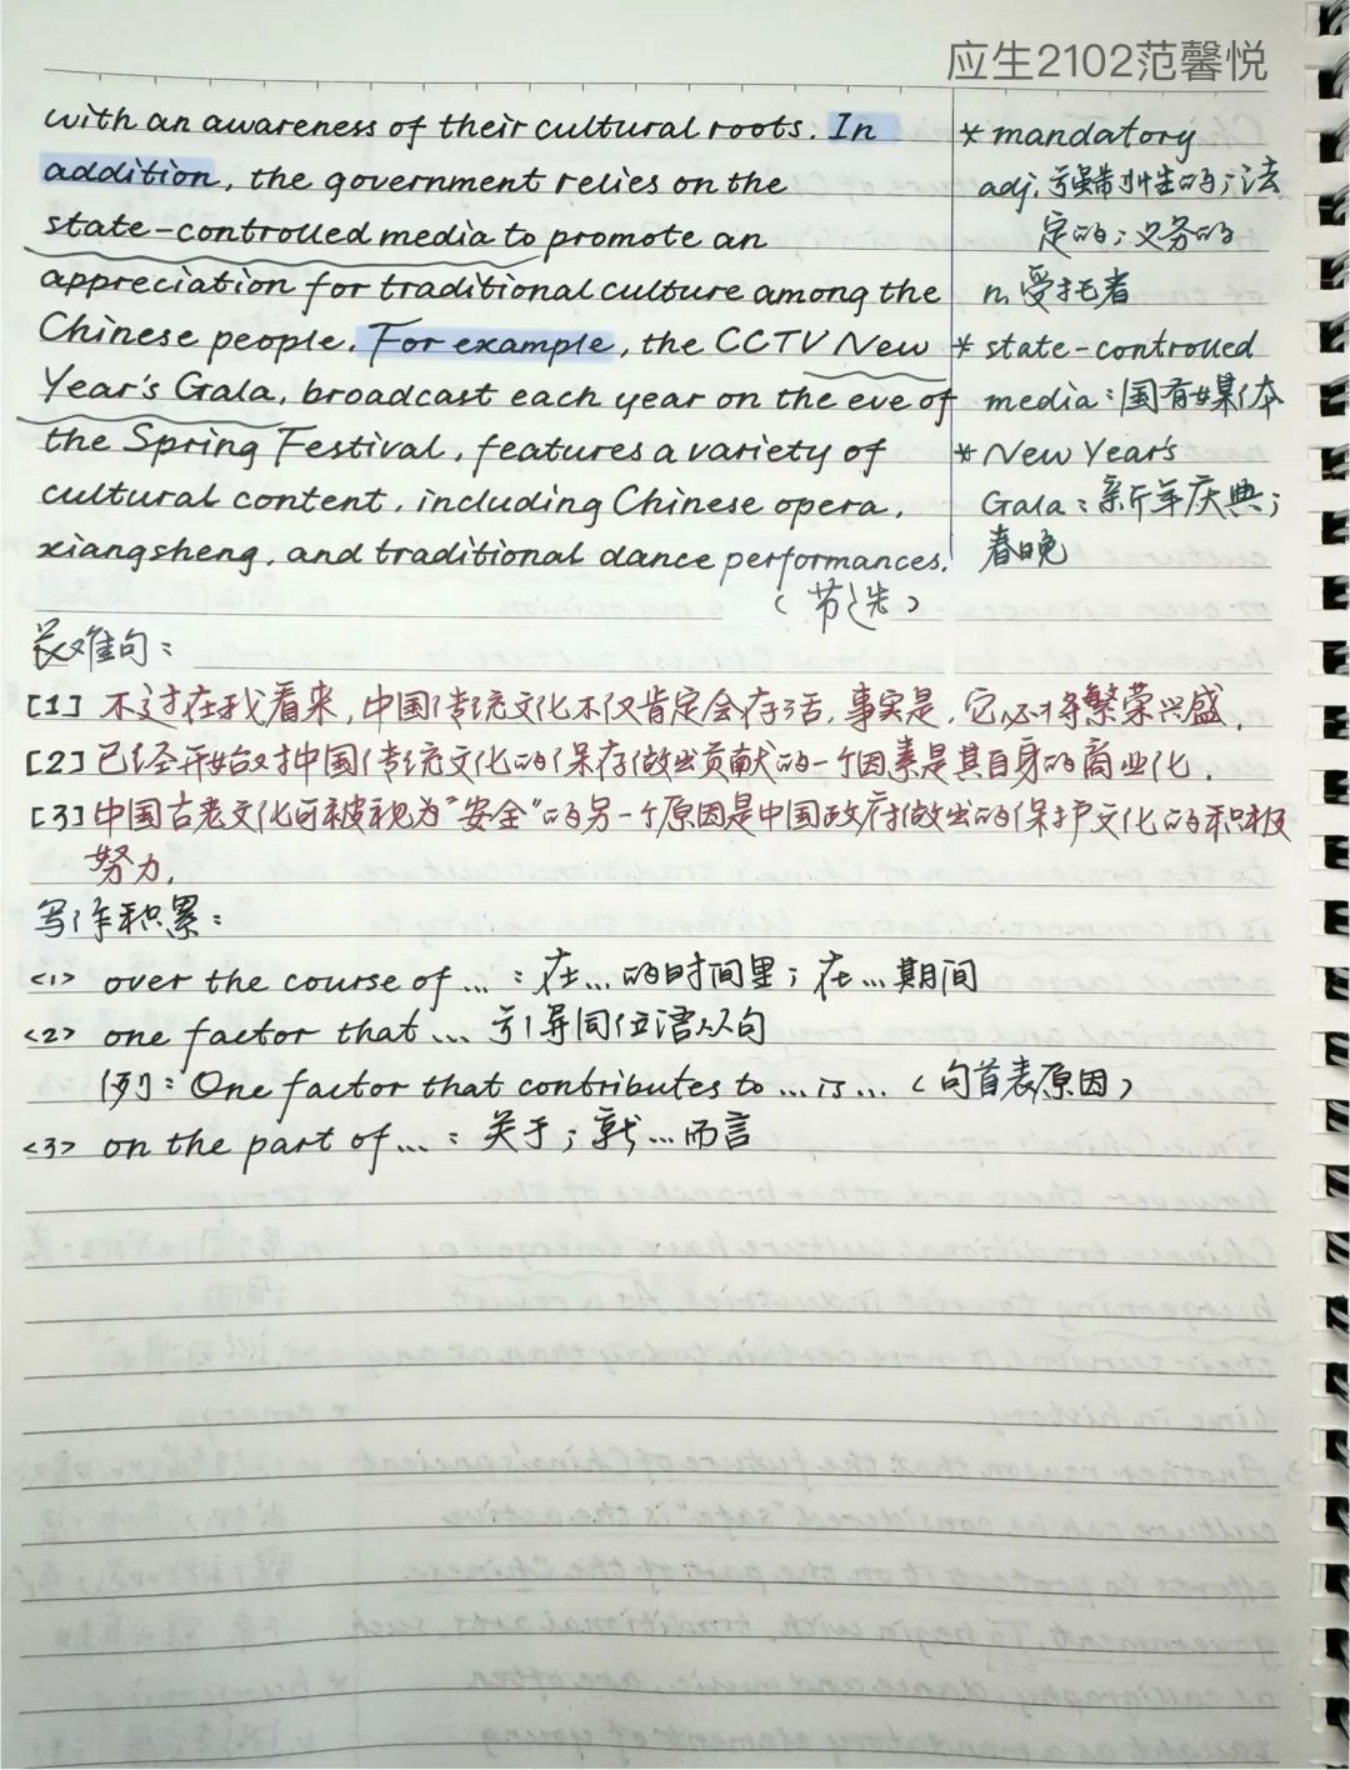 应生2102范馨悦
with an awareness of their cultural roots. In
addition, the government relies on the
state-controlled media to promote an
appreciation for traditional culture among the
Chinese people. For example, the CCTV New
Year's Gala, broadcast each year on the eve of
the Spring Festival, features a variety of
cultural content, including Chinese opera,
xiangsheng, and traditional dance performances.
(节选)
* mandatory
adj. 强制性的;法
定的;义务的
n. 受托者
* state-controlled
media:国有媒体
* New Year's
Gala:新年庆典;
春晚
长难句:
[1] 不过在我看来,中国传统文化不仅肯定会存活,事实是,它必将繁荣兴盛.
[2] 已经开始对中国传统文化的保存做出贡献的一个因素是其自身的商业化.
[3] 中国古老文化可被视为"安全"的另一个原因是中国政府做出的保护文化的积极
努力.
写作积累:
<1> over the course of ... :在...的时间里;在...期间
<2> one factor that ... 引导同位语从句
例:One factor that contributes to ... is ... (句首表原因)
<3> on the part of ... :关于;就...而言